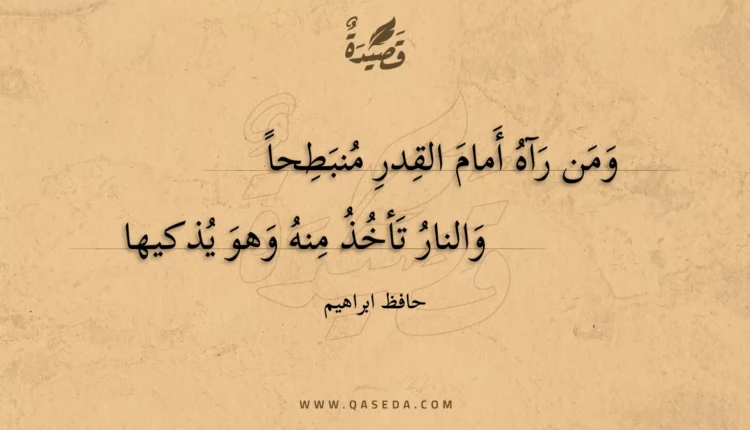 قَصِيدَةٌ
وَمَن رَآهُ أَمامَ القِدرِ مُنبَطِحاً
وَالنارُ تَأخُذُ مِنهُ وَهوَ يُذكيها
حافظ ابراهيم
WWW.QASEDA.COM